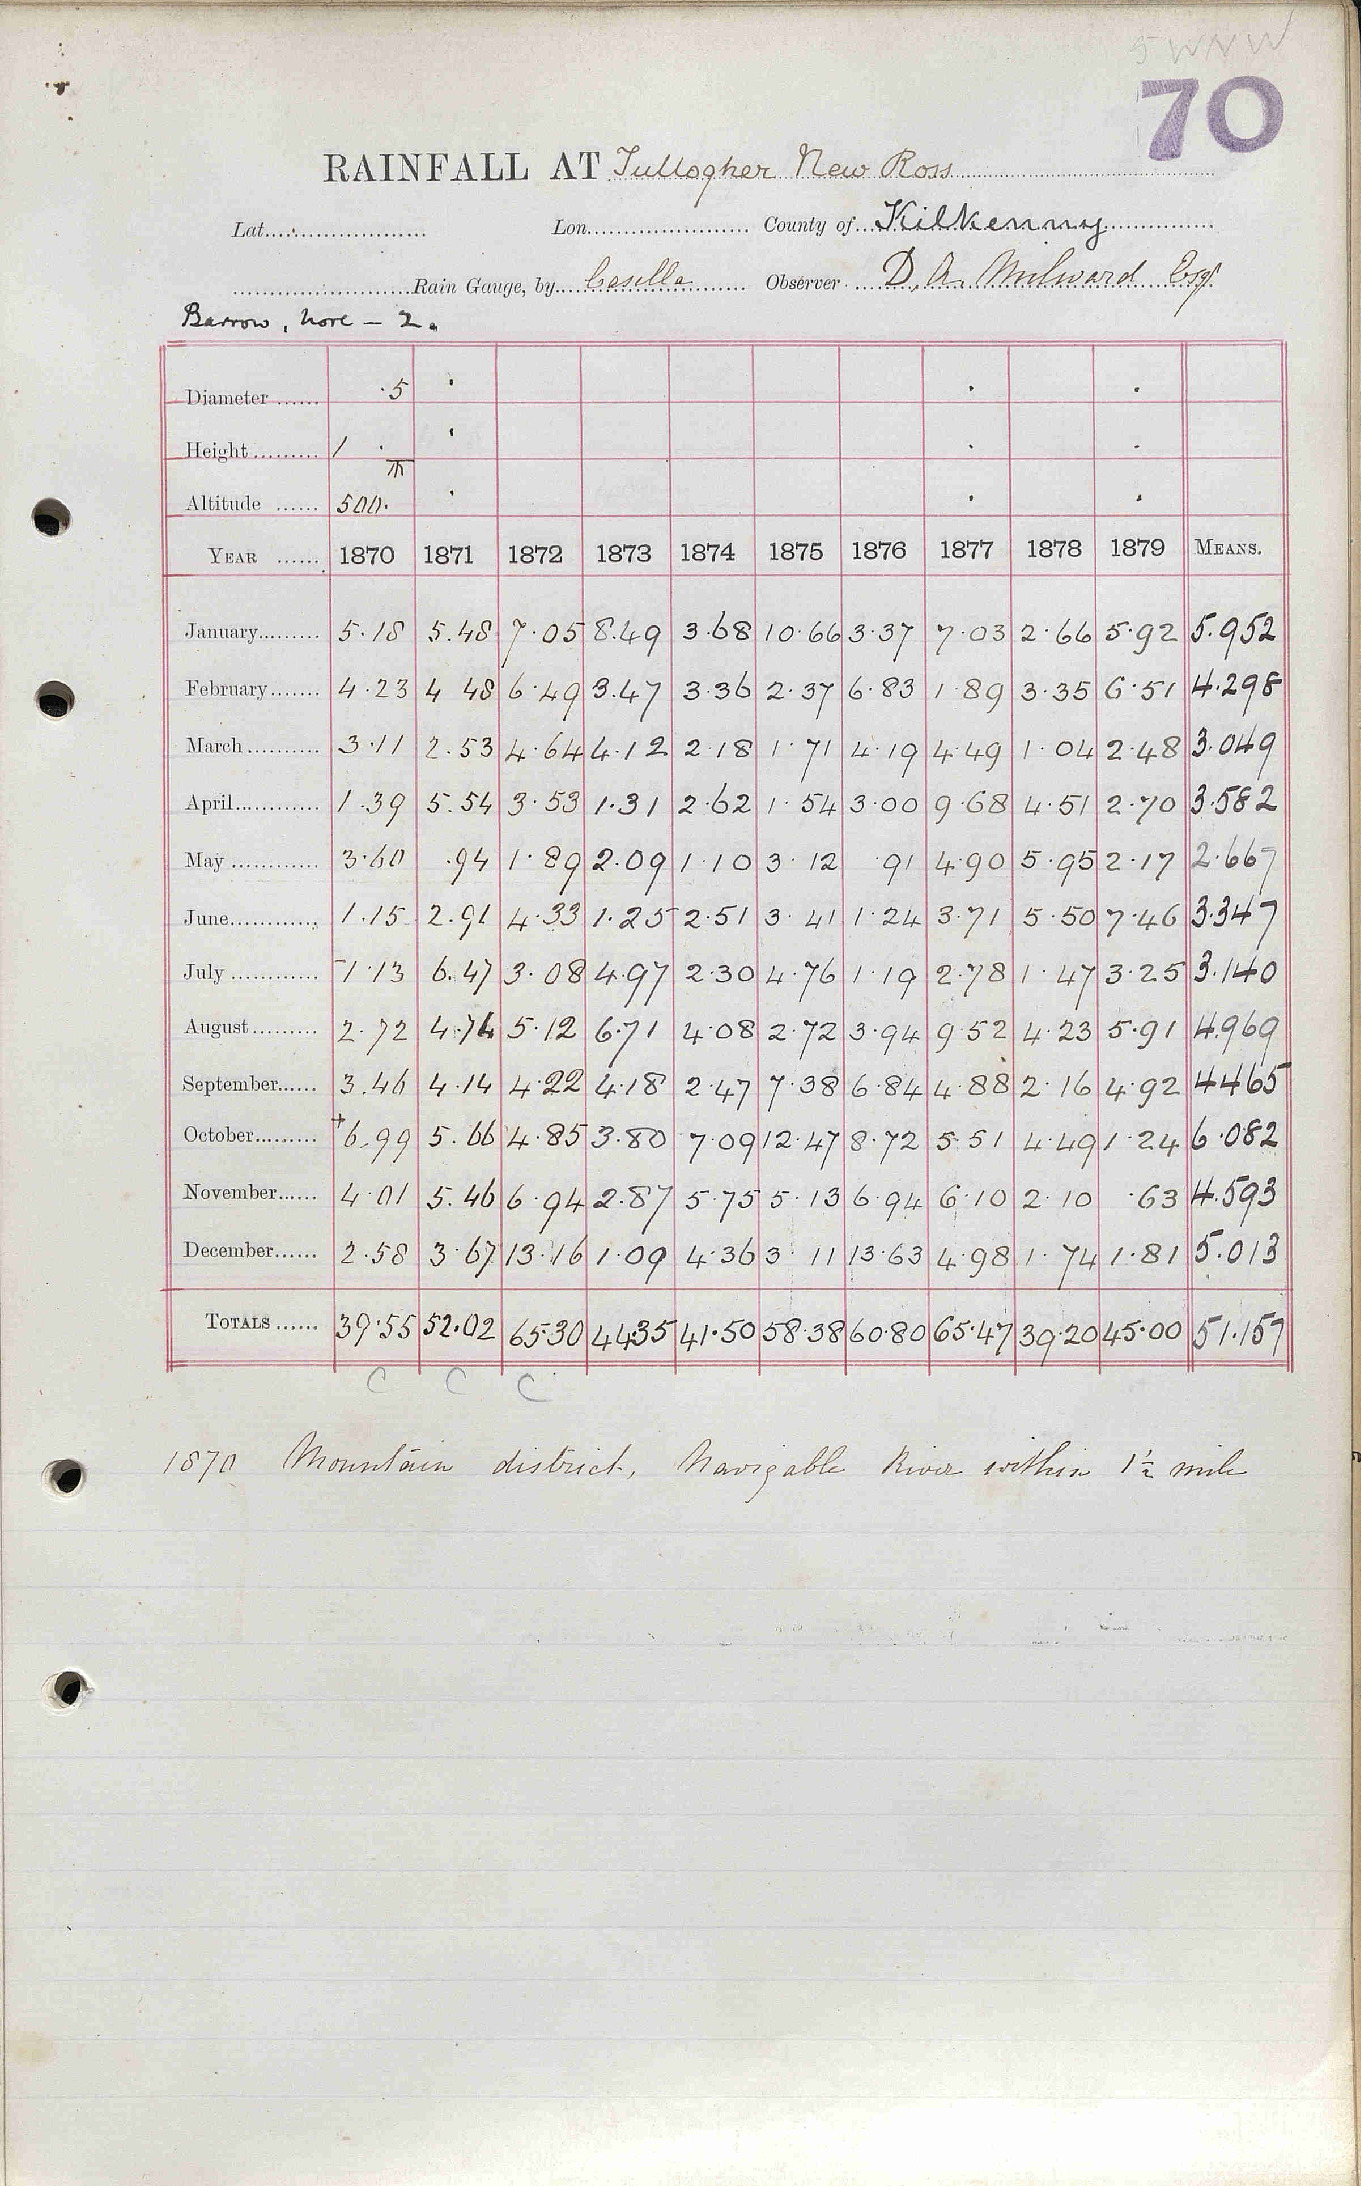 5 WNW
70
RAINFALL AT Tullogher New Ross
Lat. Lon. County of Kilkenny
Rain Gauge, by Casella Observer D. A. Milward Esqr
Barrow, Nore – 2.
Diameter ...... ·5
Height ......... 1 ·
Altitude ...... 500·
YEAR ...... 1870 1871 1872 1873 1874 1875 1876 1877 1878 1879 MEANS.
January......... 5·18 5.48 7·05 8.49 3·68 10·66 3·37 7·03 2·66 5·92 5.952
February....... 4·23 4 48 6·49 3.47 3·36 2·37 6·83 1·89 3·35 6·51 4.298
March .......... 3·11 2.53 4·64 4·12 2·18 1·71 4·19 4·49 1·04 2·48 3.049
April............ 1·39 5.54 3·53 1·31 2·62 1·54 3·00 9·68 4·51 2·70 3·582
May ............ 3·60 ·94 1·89 2·09 1·10 3·12 ·91 4·90 5·95 2·17 2·667
June............ 1·15 2.91 4·33 1·25 2·51 3·41 1·24 3·71 5·50 7·46 3.347
July ............ 1·13 6.47 3·08 4·97 2·30 4·76 1·19 2·78 1·47 3·25 3.140
August......... 2·72 4.74 5·12 6·71 4·08 2·72 3·94 9·52 4·23 5·91 4.969
September...... 3.46 4·14 4·22 4·18 2·47 7·38 6·84 4·88 2·16 4·92 4465
October......... +6.99 5.66 4·85 3·80 7·09 12·47 8·72 5·51 4·49 1·24 6·082
November...... 4·01 5.46 6·94 2·87 5·75 5·13 6·94 6·10 2·10 ·63 4.593
December...... 2·58 3·67 13·16 1·09 4·36 3·11 13·63 4·98 1·74 1·81 5.013
TOTALS ...... 39·55 52.02 65·30 44·35 41·50 58·38 60·80 65·47 39·20 45·00 51.157
C C C
1870 Mountain district, Navigable River within 1½ mile